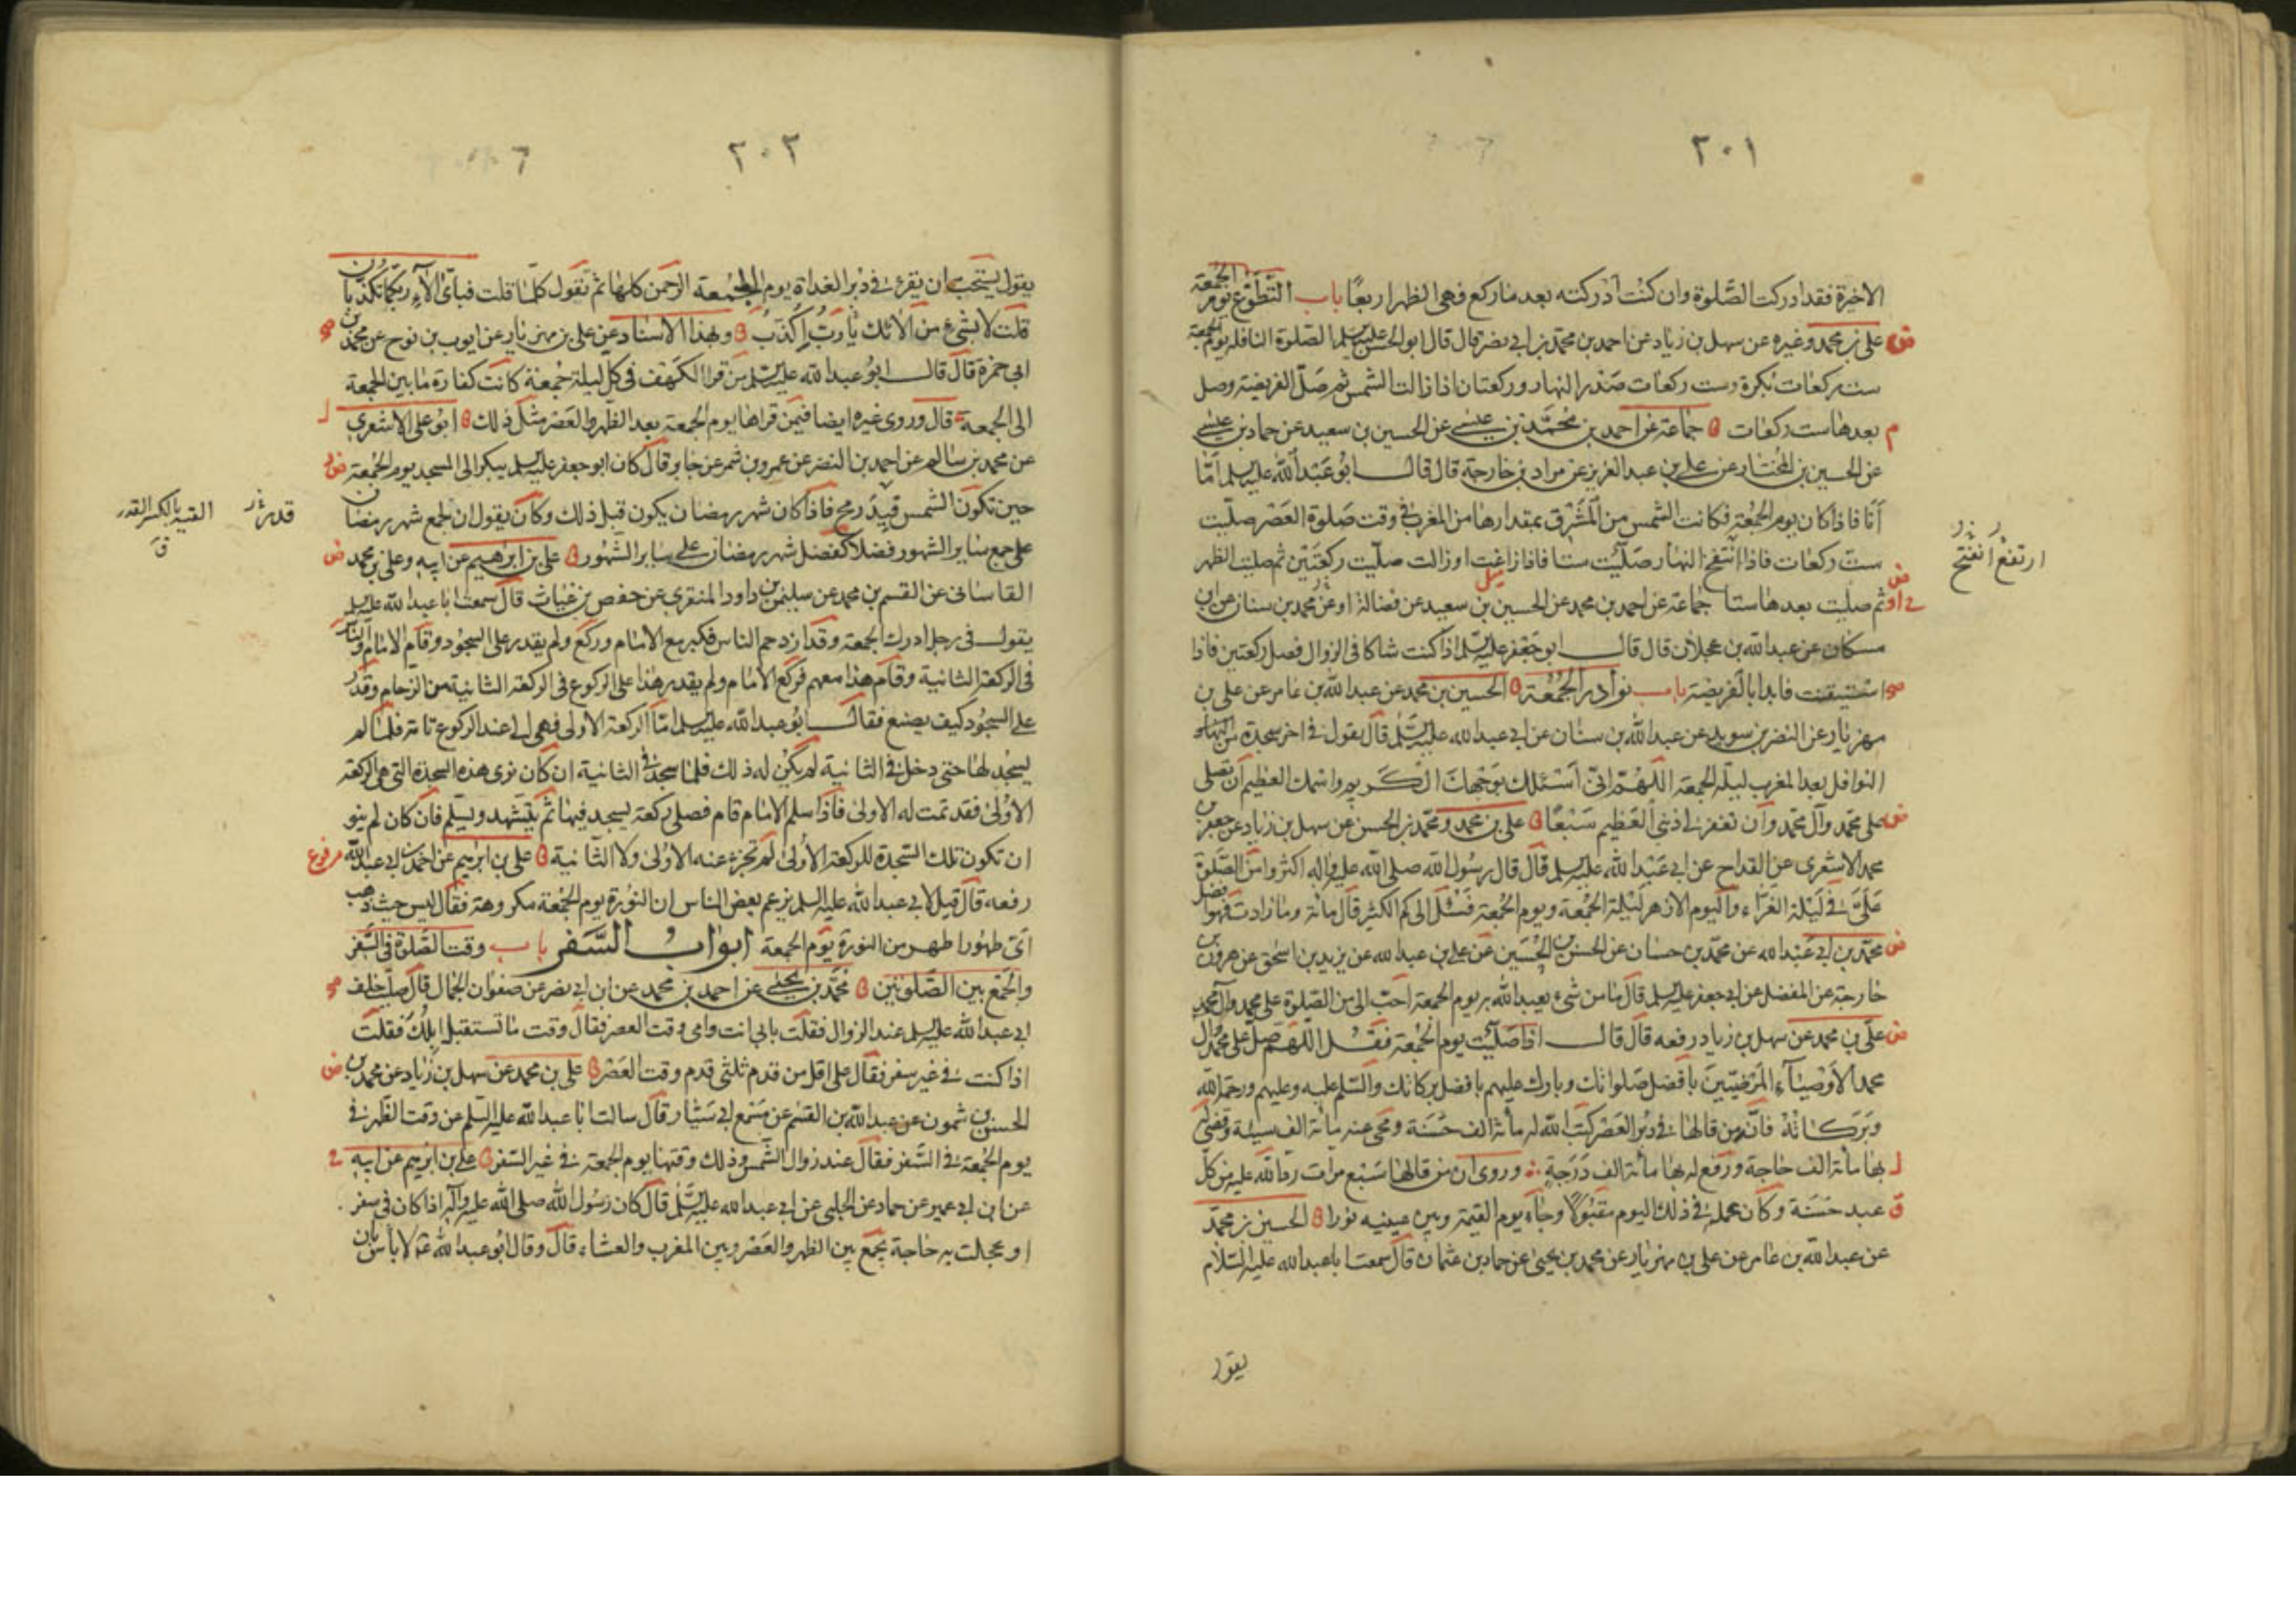 ٢٠١
الاخيرة فقد ادركت الصَّلوة وان كنت ادركته بعد ما ركع فهى الظهر اربعًا باب التَّطَوُّع يوم الجُمعة
ض على بن محمد وغيره عن سهل بن زياد عن احمد بن محمد بن ابى نصر قال قال ابو الحسن عليه السلم الصّلوة النافلة يوم الجمعة
ست ركعات بكرة وست ركعات صَدْر النهار وركعتان اذا زالت الشمس ثم صَلّ الفريضة وصل
م بعدها ست ركعات جماعة عن احمد بن مُحَمَّد بن عيسى عن الحسين بن سعيد عن حماد بن عيسى
عن الحسين بن المُختار عن على بن عبد العزيز عن مراد بن خارجة قال قال ابُو عَبْد الله عليه السلم امّا
أنَا فاذا كان يوم الجُمعة فكانت الشمس من المَشْرق بمقدارها من المغرب فى وقت صَلوة العَصْر صلّيت
ست ركعات فاذا انتفخ النهار صَلّيت ستا فاذا زاغت او زالت صلّيت ركعَتَين ثم صليت الظهر
ارتفع انفتح
ثم صليت بعدها ستا جماعة عن احمد بن محمد عن الحسين بن سعيد عن فضالة او عن محمد بن سنان عن ابن
مسكان عن عبد الله بن عجلان قال قال ابو جَعْفر عليه السلم اذا كنت شاكا فى الزوال فصل ركعتين فاذا
استيقنت فابدا بالفريضة باب نوادر الجُمُعة الحسين بن محمد عن عبد الله بن عامر عن على بن
مهزيار عن النضر بن سويد عن عبد الله بن سنان عن ابى عبد الله عليه السلم قال يقول فى اخر سجدة من
النوافل بعد المغرب ليلة الجمعة اللهُمَّ انّى أسْئلك بوَجْهك الكَريم واسمك العظيم أن تصلى
ض على محمّد وآل محمّد وان تغفر لى ذنبى العَظيم سَبْعًا على بن محمد ومحمّد بن الحسن عن سهل بن زياد عن جعفر بن
محمد الاشعرى عن القداح عن ابى عَبْد الله عليه السلم قال قال رسُول الله صلى الله عليه واله اكثروا من الصَّلوة
عَلَىَّ فى لَيْلة الغَرَّاء واليوم الازهر لَيْلة الجُمْعة ويوم الجُمْعة فسُئل الى كم الكثير قال مائة وما زادت فهو افضل
ض محمّد بن ابى عَبْد الله عن محمّد بن حسان عن الحسن بن الحُسَين عن على بن عبد الله عن يزيد بن اسحق عن هرون بن
خارجة عن المفضل عن ابى جعفر عليه السلم قال ما من شىء يعبد الله به يوم الجمعة احبّ الى من الصّلوة على محمد وآل محمد
ض على بن محمد عن سهل بن زياد رفعه قال قال اذا صَلّيت يوم الجُمْعة فقُل اللهم صَلّ على محمّد وآل
محمد الأوْصِيَاء المَرْضيّينَ بافضَل صَلواتك وبارك عليهم بافضل بركاتك والسّلم عليه وعليهم ورحمة الله
وبَرَكاته فانّه من قالها فى دبُر العَصْر كتَبَ الله له مائة الف حسَنَة ومحى عنه مائة الف سيئة وقضى له
بها مائة الف حاجة ورَفع له بها مائة الف دَرَجة وروى ان من قالها سَبْع مرات ردّ الله عليه من كلّ
ق عبد حَسَنة وكان عمله فى ذلك اليوم مقبُولًا وجاء يوم القيمة وبين عينيه نورا الحسين بن محمّد
عن عبد الله بن عامر عن على بن مهزيار عن محمد بن يحيى عن حماد بن عثمان قال سمعت ابا عبد الله عليه السّلام
يقول
٢٠٢
يقول يُستحَب ان يقرء فى دبُر الغداة يوم الجُمعة الرَّحمن كلها ثم تقول كلّما قلت فباىّ الآءِ ربّكما تكذّبان
قلت لا بشىء من الائك يا رَبُّ اكذب وبهذا الاسناد عن على بن مهزيار عن ايوب بن نوح عن محمد بن
ابى حمزة قال قال ابُو عبد الله عليه السلم من قرا الكَهف فى كل ليلة جُمعة كانت كفارة ما بين الجمعة
الى الجمعة قال وروى غيره ايضا فيمن قراها يوم الجمعة بعد الظهر والعَصْر مثل ذلك ابو على الاشعرى
عن محمد بن سالم عن احمد بن النضر عن عمرو بن شمر عن جابر قال كان ابو جعفر عليه السلم يبكر الى المسجد يوم الجُمْعة
حين تكون الشمس قيد رمح فاذا كان شهر رمضان يكون قبل ذلك وكان يقول ان لجمع شهر رمضان
قدر القيد بالكسر القدر ق
على جمع ساير الشهور فضلا كفضل شهر رمضان على ساير الشهُور على بن ابرهيم عن ابيه وعلى بن محمد ض
القاسانى عن القسم بن محمد عن سليمن بن داود المنقرى عن حفص بن غياث قال سمعت ابا عبد الله عليه السلم
يقول فى رجل ادرك الجمعة وقد ازدحم الناس فكبر مع الامام وركع ولم يقدر على السجود وقام الامام والناس
فى الركعة الثانية وقام هذا معهم فركع الامام ولم يقدر هذا على الركوع فى الركعة الثانية من الزحام وقدر
على السجُود كيف يصنع فقال ابُو عبد الله عليه السلم امّا الركعة الاولى فهى الى عند الركوع تامة فلمّا لم
يسجُد لها حتى دخل فى الثانية لم يكُن له ذلك فلما سجد فى الثانية ان كان نوى هذه السجدة التى هى الركعة
الاوْلى فقد تمت له الاولى فاذا سلم الامام قام فصلى ركعة يسجد فيها ثم يتشهد ويسلم فان كان لم ينو
ان تكون تلك السّجدة للركعة الأولى لم تجز عنه الاولى ولا الثانية على بن ابرهيم عن احمد بن ابى عبد الله مرفوع
رفعه قال قيل لابى عبد الله عليه السلم يزعم بعض الناس ان النوُرة يوم الجُمْعة مكروهة فقال ليس حيث ذهب
اىّ طهُور اطهر من النورة يوم الجمعة ابواب السَّفر باب وقت الصَّلوة فى السَّفر
والجَمْع بين الصَّلوتين محمَّد بن يحيى عن احمد بن محمد عن ابن ابى نصر عن صفوان الجمال قال صليت خلف
ابى عبد الله عليه السلم عند الزوال فقلت بابى انت وامى وقت العصر فقال وقت ما تستقبل ابلك فقلت
اذا كنت فى غير سفر فقال على اقل من قدم ثلثى قدم وقت العَصْر على بن محمد عن سهل بن زياد عن محمد بن ض
الحسن بن شمون عن عبد الله بن القسم عن مِسْمع ابى سَيّار قال سالت ابا عبد الله عليه السّلم عن وقت الظهر فى
يوم الجُمْعة فى السَّفر فقال عند زوال الشّمس وذلك وقتها يوم الجمعة فى غير السّفر على بن ابرهيم عن ابيه
عن ابن ابى عمير عن حماد عن الحلبى عن ابى عبد الله عليه السلم قال كان رسُول الله صلى الله عليه وآله اذا كان فى سفر
او عجلت به حاجة يجمَع بين الظهر والعَصْر وبين المغرب والعشاء قال وقال ابُو عبد الله ع لا بأس بان